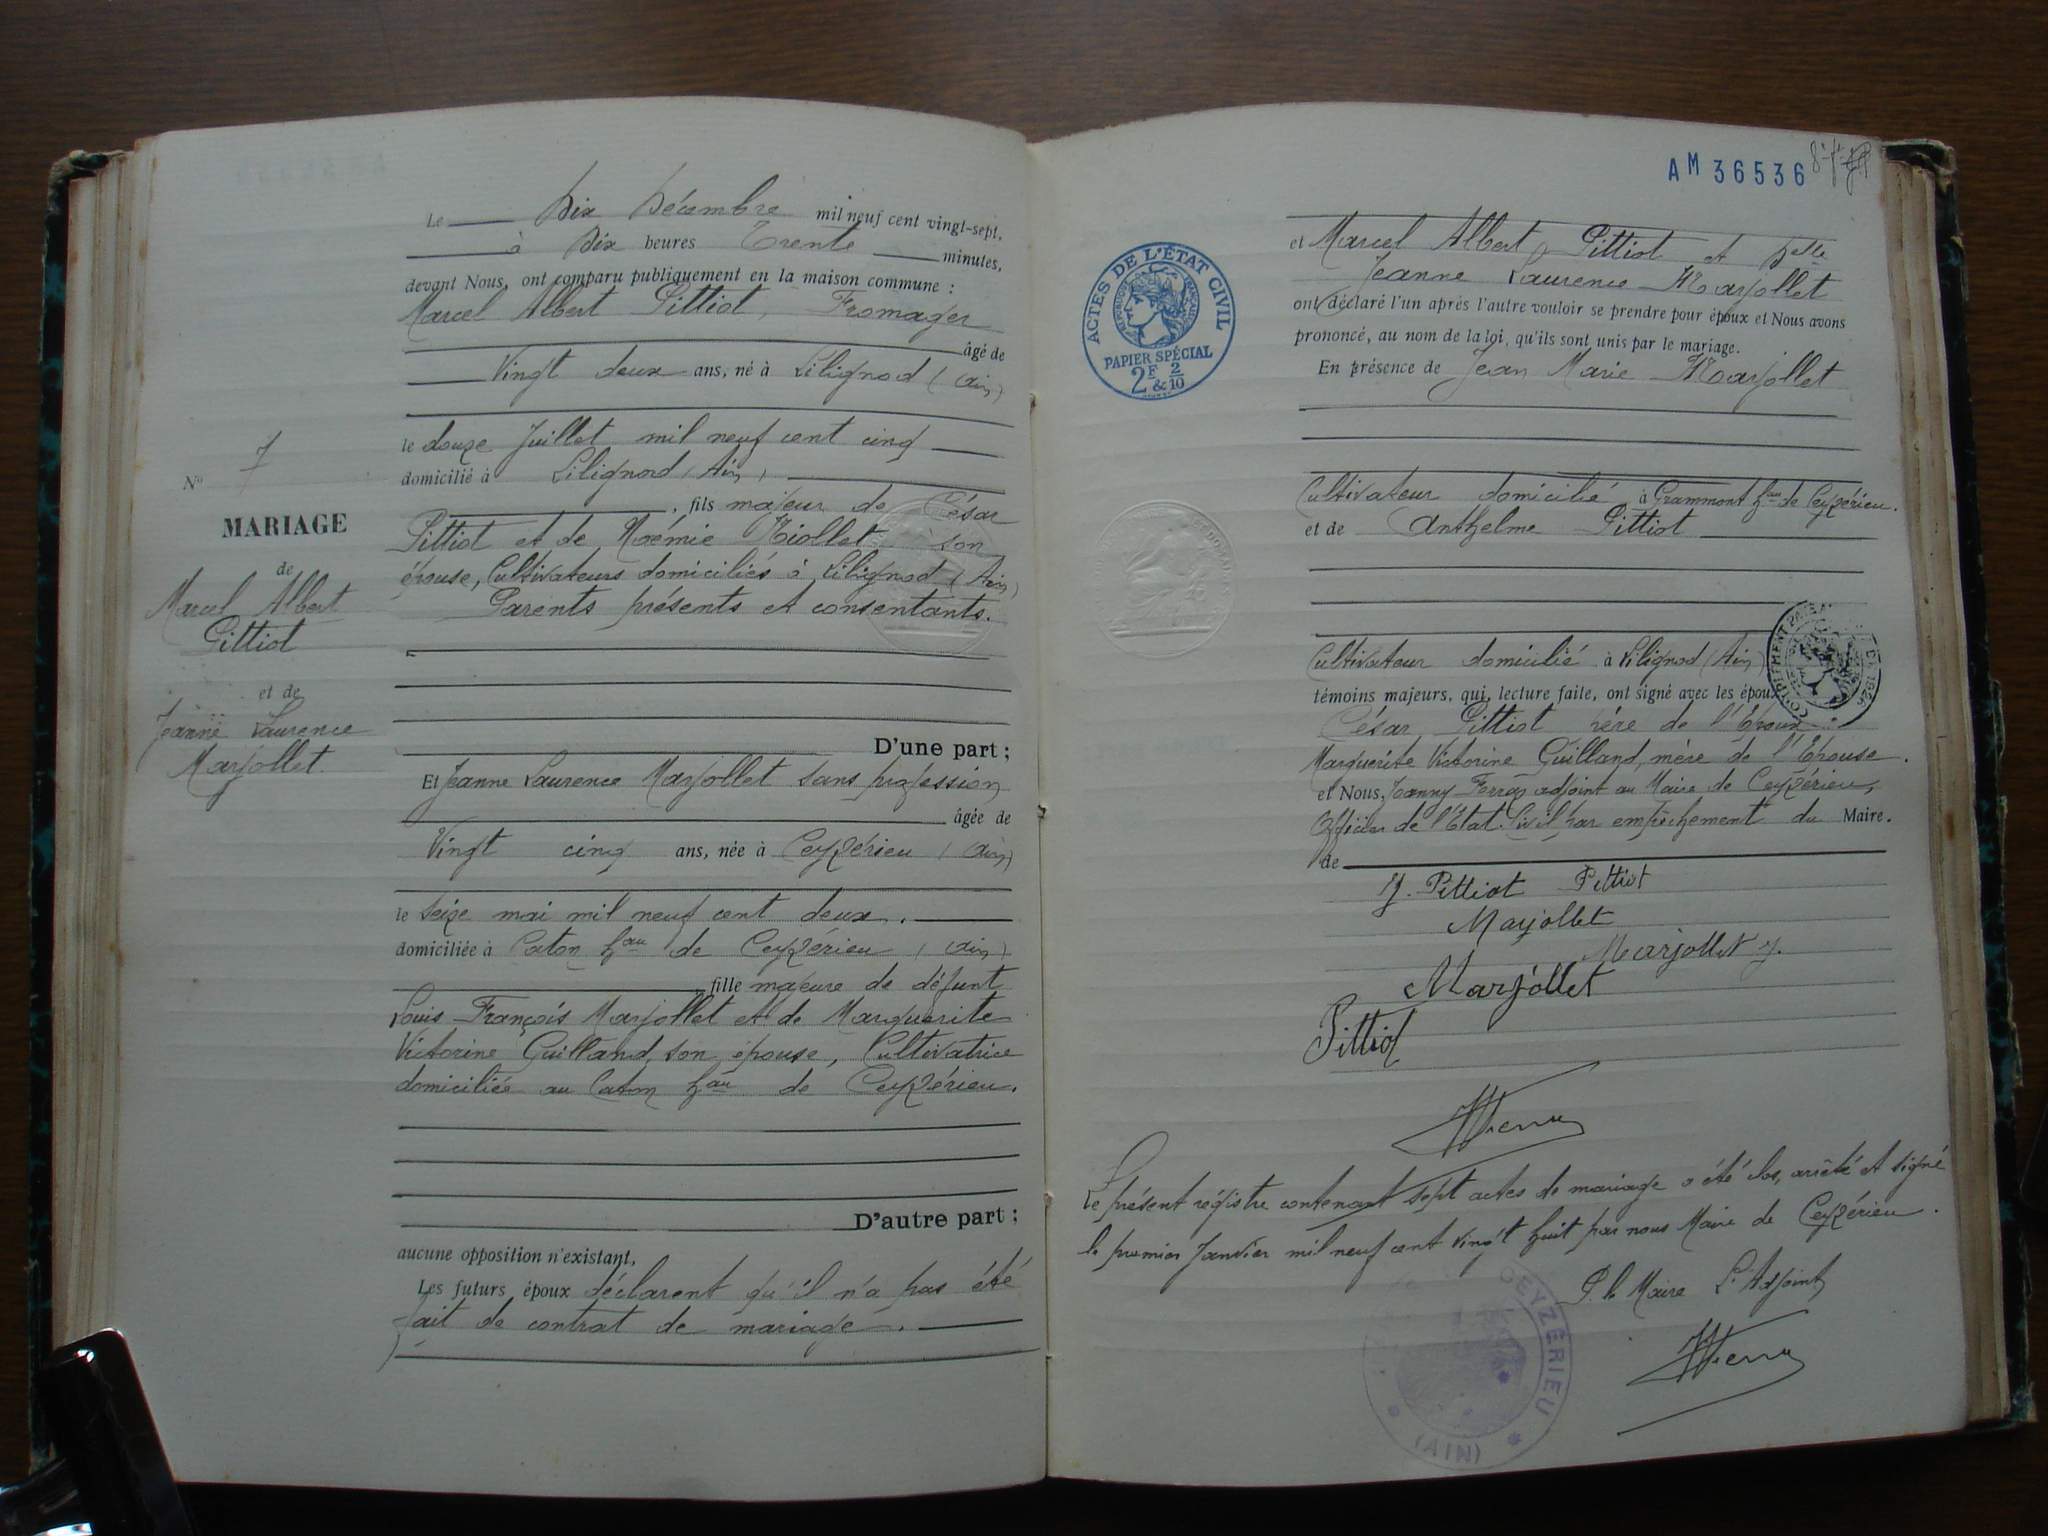 Le Dix Décembre mil neuf cent vingt-sept,
à Dix heures Trente minutes,
devant Nous, ont comparu publiquement en la maison commune :
Marcel Albert Pittiot, Fromager
âgé de
Vingt deux ans, né à Lilignod (Ain)
le douze Juillet mil neuf cent cinq
domicilié à Lilignod (Ain)
, fils majeur de César
Pittiot et de Noémie Niollet son
épouse, Cultivateurs domiciliés à Lilignod (Ain)
Parents présents et consentants.
D'une part ;
Et Jeanne Laurence Marjollet sans profession
âgée de
Vingt cinq ans, née à Ceyzérieu (Ain)
le seize mai mil neuf cent deux.
domiciliée à Caton hau de Ceyzérieu (Ain)
fille majeure de défunt
Louis François Marjollet et de Marguerite
Victorine Guilland, son épouse, Cultivatrice
domiciliée au Caton hau de Ceyzérieu.
D'autre part ;
aucune opposition n'existant,
Les futurs époux déclarent qu'il n'a pas été
fait de contrat de mariage.
No 7
MARIAGE
de
Marcel Albert
Pittiot
et de
Jeanne Laurence
Marjollet.
AM 36536
et Marcel Albert Pittiot et Delle
Jeanne Laurence Marjollet
ont déclaré l'un après l'autre vouloir se prendre pour époux et Nous avons
prononcé, au nom de la loi, qu'ils sont unis par le mariage.
En présence de Jean Marie Marjollet
Cultivateur domicilié à Grammont hau de Ceyzérieu.
et de Anthelme Pittiot
Cultivateur domicilié à Lilignod (Ain)
témoins majeurs, qui, lecture faite, ont signé avec les époux
César Pittiot père de l'Epoux
Marguerite Victorine Guilland, mère de l'Epouse.
et Nous, Joanny Ferraz adjoint au Maire de Ceyzérieu,
Officier de l'Etat Civil par empêchement du Maire.
de
J. Pittiot Pittiot
Marjollet
Marjollet J.
Marjollet
Pittiot
Le présent régistre contenant sept actes de mariage a été clos, arrêté et signé
le premier Janvier mil neuf cent vingt huit par nous Maire de Ceyzérieu.
P. le Maire L'Adjoint
ACTES DE L'ÉTAT CIVIL
RÉPUBLIQUE FRANÇAISE
PAPIER SPÉCIAL
2F & 2/10
CEYZÉRIEU
(AIN)